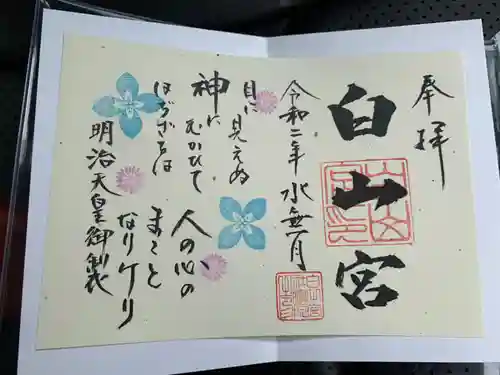 奉拝
白山宮
令和二年 水無月
目に見えぬ
神にむかひて
はぢざるは
人の心の
まことなりけり
明治天皇御製